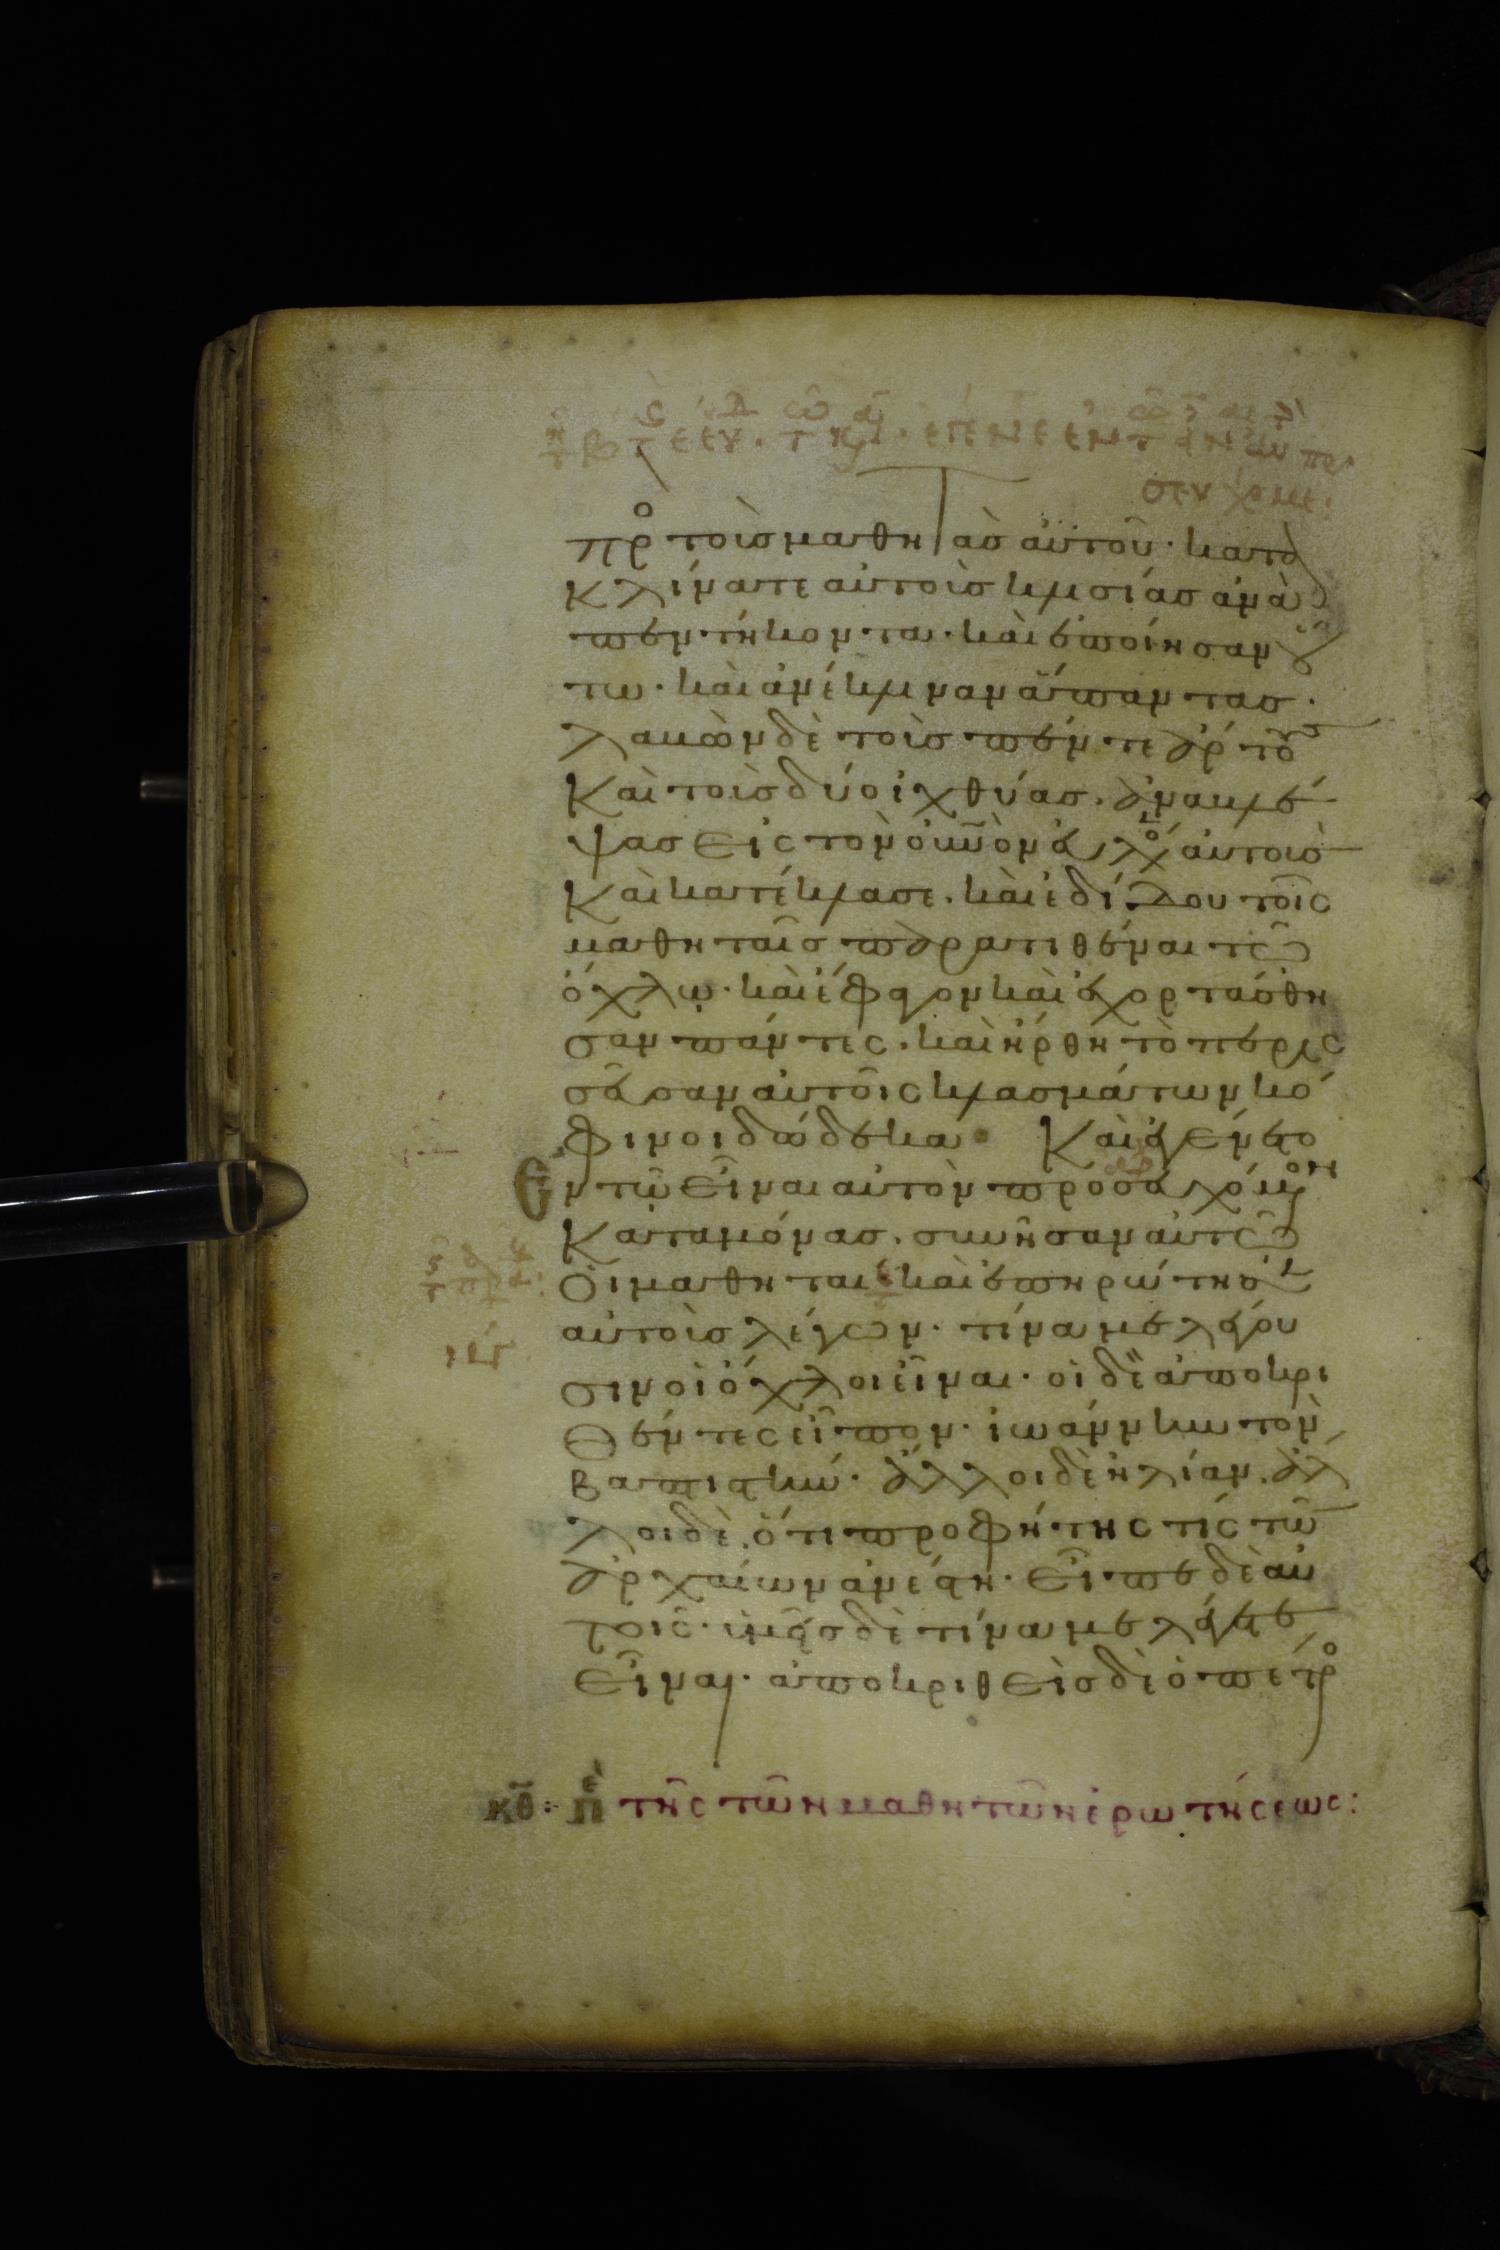 πρὸ τοὺσ μαθητὰσ αὐτοῦ· κατα
κλίνατε αὐτοὺσ κλισίασ ἀνὰ
πεντήκοντα· καὶ ἐποίησαν οὕ
τω· καὶ ἀνέκλιναν ἅπαντασ·
λαβὼν δὲ τοὺσ πέντε ἄρτους
Καὶ τοὺσ δύο ἰχθύασ. ἀναβλέ
ψασ εἰς τὸν οὐνὸν εὐλόγ αὐτοὺσ
Καὶ κατέκλασε. καὶ ἐδίδου τοῖς
μαθηταῖσ παρατιθέναι τῶ
ὄχλω· καὶ ἔφαγον καὶ ἐχορτάσθη
σαν πάντες. καὶ ἤρθη τὸ περισ
σεῦσαν αὐτοῖς κλασμάτων κό
φινοι δώδεκα· Καὶ ἐγένετο
Ἐν τῶ εἶναι αὐτὸν προσευχόμον
Καταμόνασ. συνῆσαν αὐτῶ
Οἱ μαθηταί καὶ ἐπηρώτησε
αὐτοὺσ λέγων· τίνα με λέγου
σιν οἱ ὄχλοι εἶναι· οἱ δὲ ἀποκρι
Θέντες εἶπον· ἰωάννην τὸν
βαπτιστήν· ἄλλοι δὲ ἠλίαν. ἄλ
λοι δὲ. ὅτι προφήτης τίς τῶ
ἀρχαίων ἀνέστη· Εἶπε δὲ αὐ
τοῖς· ὑμεῖσ δὲ τίνα με λέγετε
Εἶναι· ἀποκριθεὶσ δὲ ὁ πέτρο
κθ: πε τῆς τῶν μαθητῶν ἐρωτήσεως: